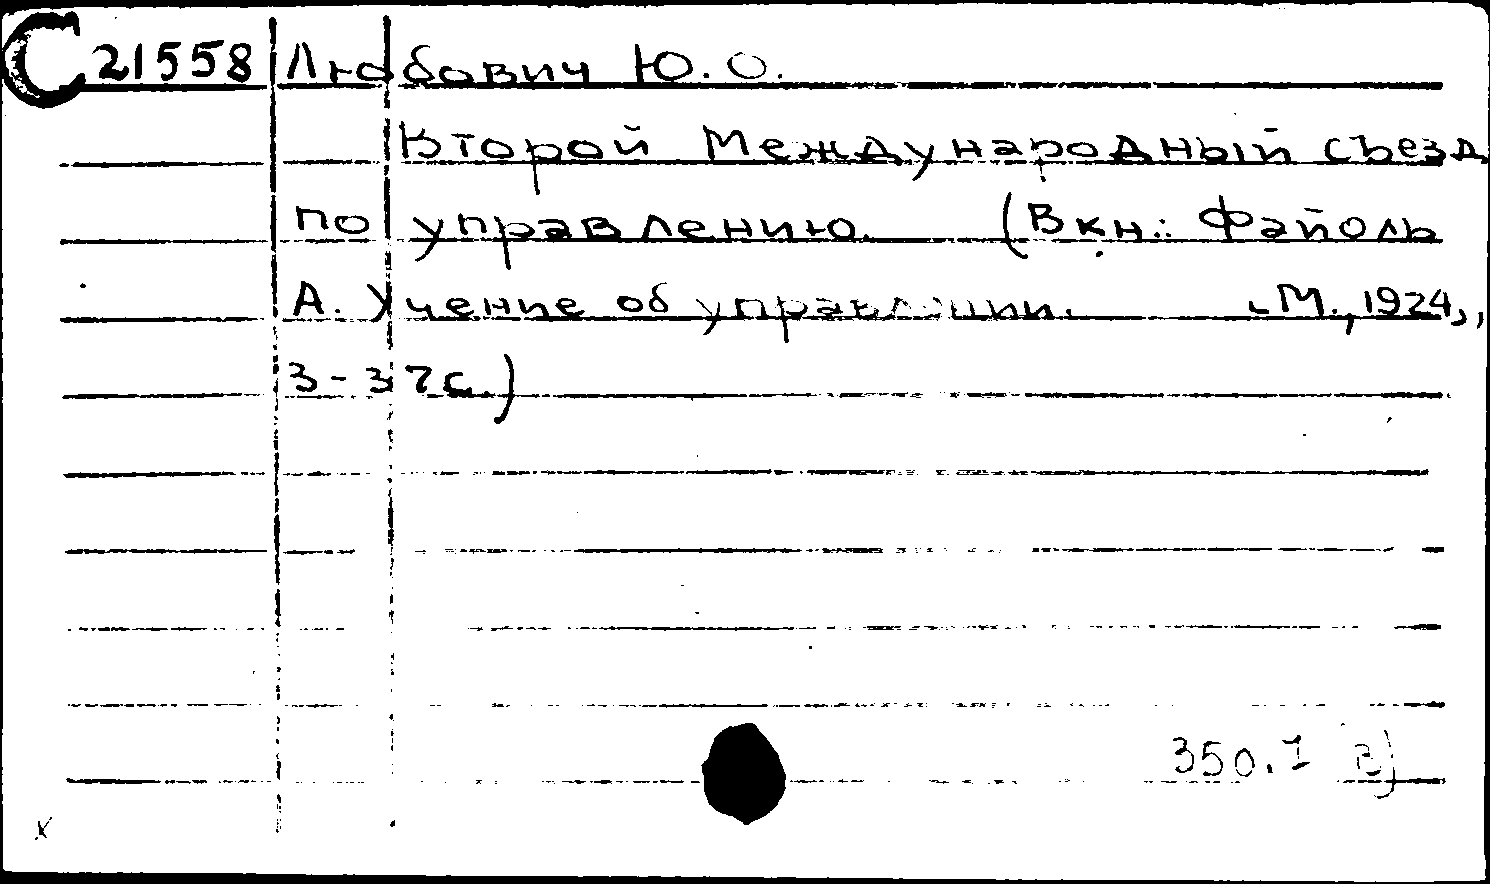 С 21558 Любович Ю. О.
Второй Международный съезд
по управлению. (В кн.: Файоль
А. Учение об управлении. М., 1924,
3-37с.)
350.1 в)
x